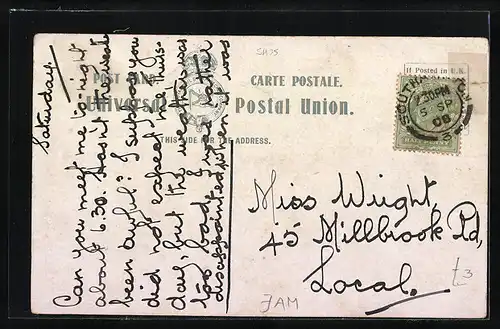 SH35
If Posted in U.K.
POST CARD
CARTE POSTALE.
Universal Postal Union.
THIS SIDE FOR THE ADDRESS.
SOUTHA
7.30PM
5 SP
08
HALFPENNY
Saturday.
Can you meet me to-night
about 6.30. Hasn't the weather
been awful? I suppose you
did not expect me Thurs-
day, but the weather was
too bad. I was rather
disappointed, when it was
Miss Wright,
45 Millbrook Rd,
Local.
JAM
£3